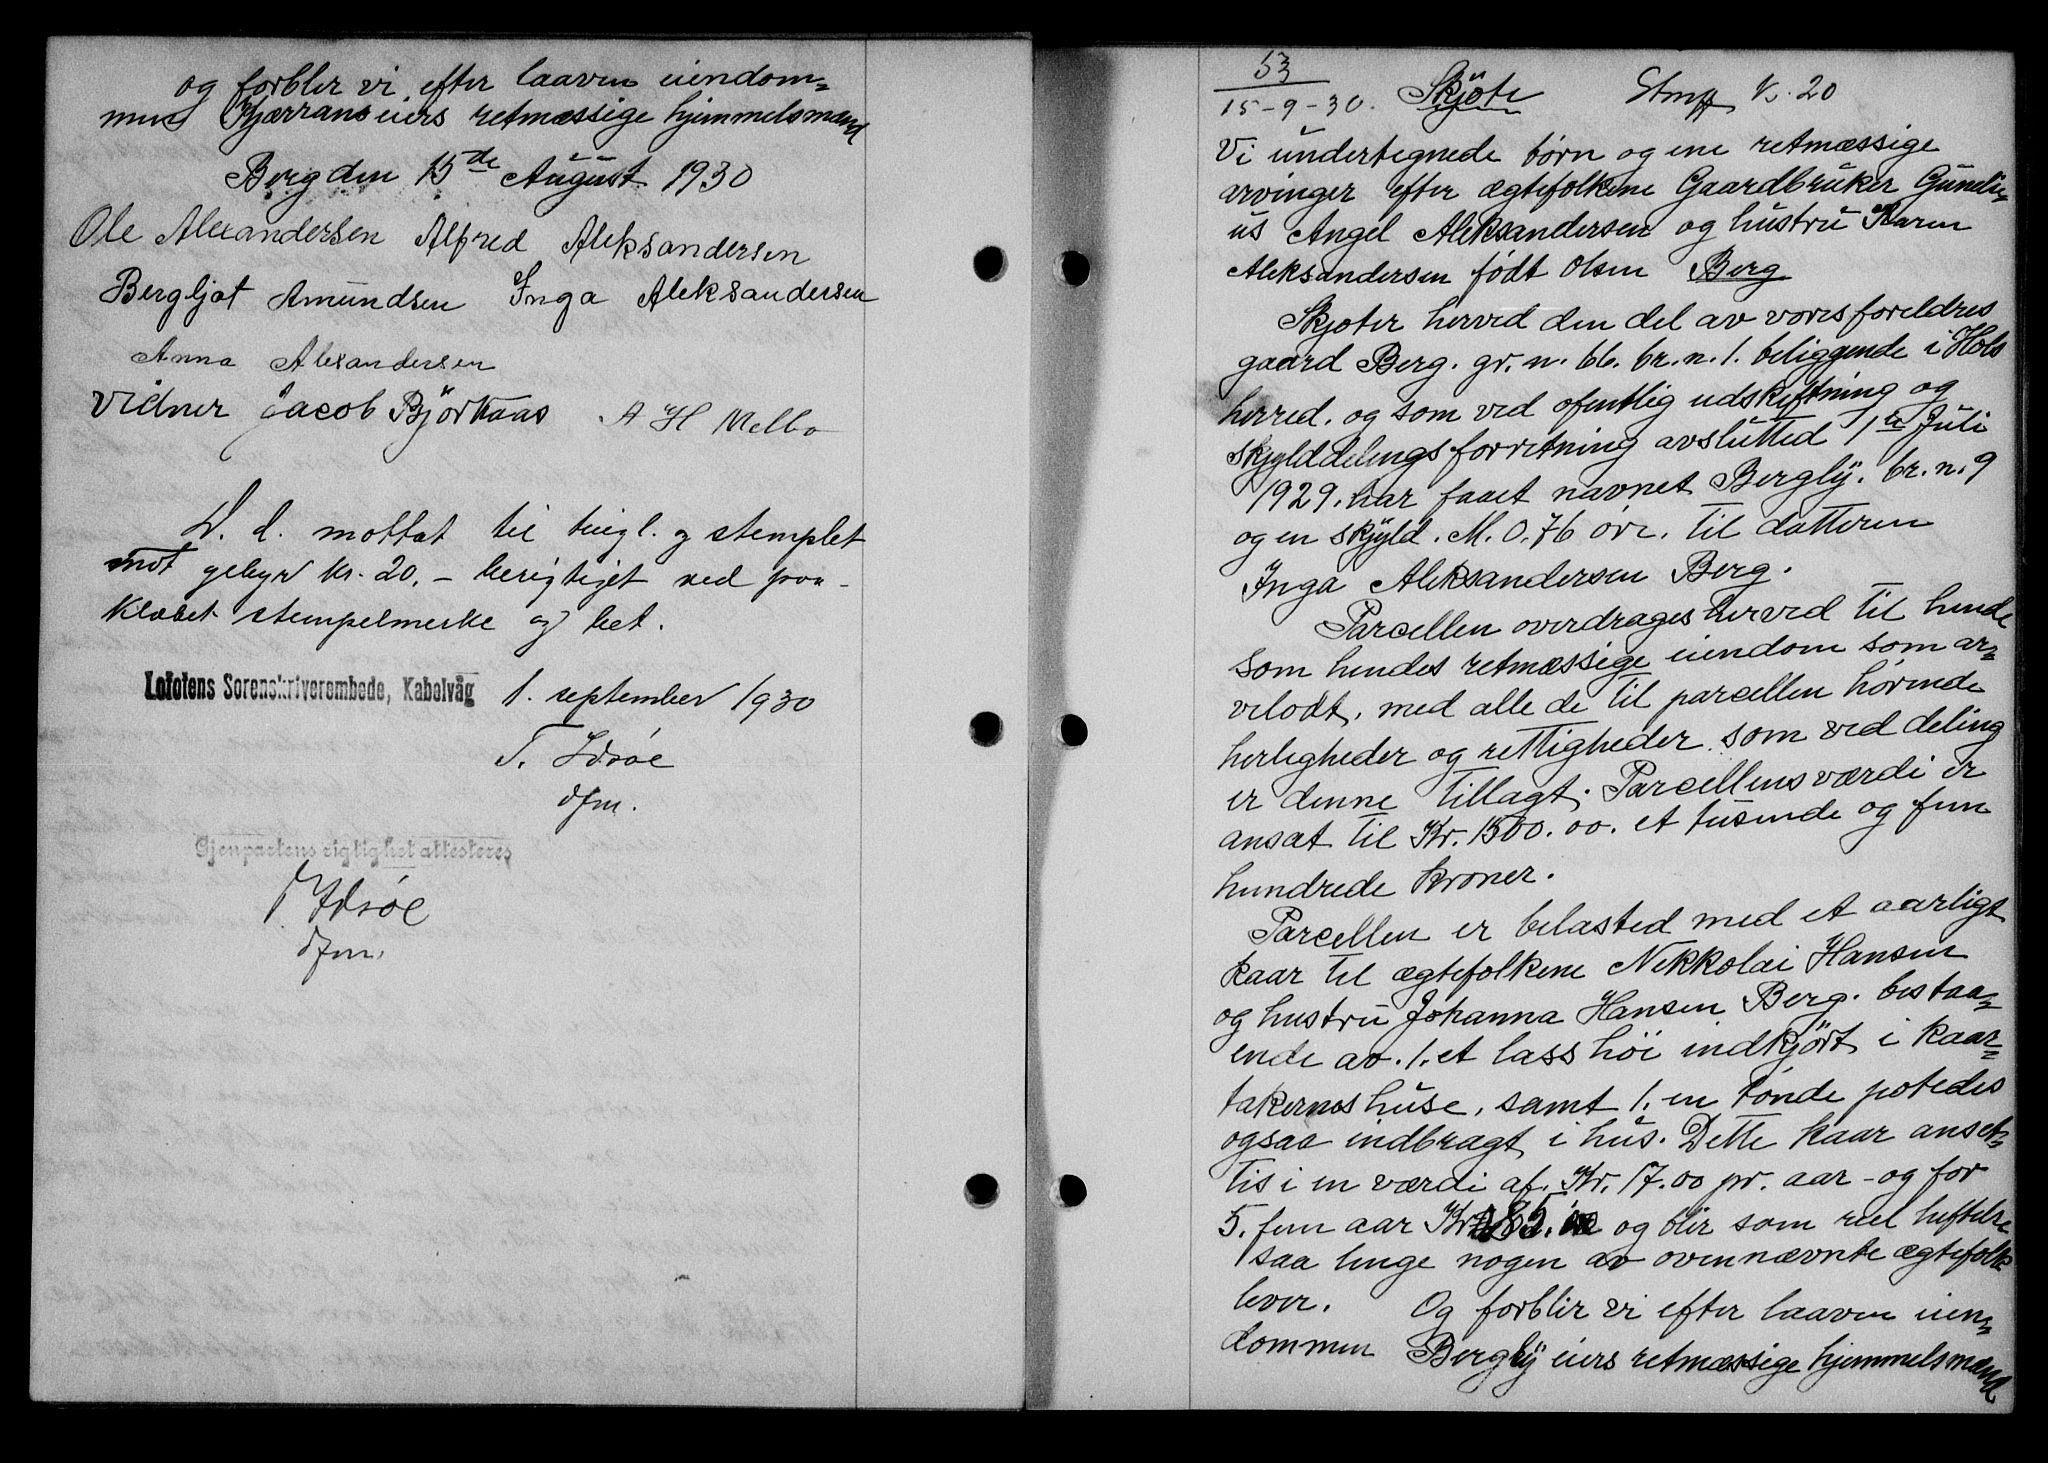 og forbler vi efter laaven eiendom=
men Kjærrans eiers retmæssige hjemmelsmænd
Berg den 15de August 1930
Ole Alexandersen Alfred Aleksandersen
Bergljot Amundsen Inga Aleksandersen
Anna Alexandersen
Vidner Jacob Bjørkaas A H Melbo
D. d. mottat til tingl. og stemplet
mot gebyr kr. 20,- berigtiget ved paa-
klæbet stempelmerke og bet.
Lofotens Sorenskriverembede, Kabelvåg 1. september 1930
T. Idsøe
dfm.
Gjenpartens rigtighet attesteres
T Idsøe
dfm.
53
15-9-30. Skjøte Stmp kr. 20
Vi undertegnede børn og ene retmæssige
arvinger efter ægtefolkene Gaardbruker Gunelie-
us Angel Aleksandersen og hustru Karen
Aleksandersen født Olsen Berg
Skjøter herved den del av vores foreldres
gaard Berg. gr. n. 66. br. n. 1. beliggende i Hols
herred. og som ved ofentlig udskiftning og
skylddelingsforretning avslutted 1te Juli
1929. har faaet navnet Bergly. br. n. 9
og en skyld. M. 0,76 øre. til datteren
Inga Aleksandersen Berg.
Parcellen overdrages herved til hende
som hendes retmæssige eiendom som ar=
velodt, med alle de til parcellen hørende
herligheder og rettigheder som ved deling
er denne tillagt. Parcellens værdi er
ansat til Kr. 1500.00. et tusende og fem
hundrede kroner.
Parcellen er belasted med et aarligt
kaar til ægtefolkene Nekkolai Hansen
og hustru Johanna Hansen Berg. bestaa=
ende av. 1. et lass høi indkjørt i kaar=
takernes huse, samt 1. en tønde potedes
ogsaa indbragt i hus. Dette kaar anset=
tes i en værdi af. Kr. 17.00 pr. aar - og for
5. fem aar Kr. 85.00 og blir som reel heftelse
saa lenge nogen av ovennævnte ægtefolk
lever. Og forblir vi efter laaven eien=
dommen Bergly eiers retmæssige hjemmelsmænd